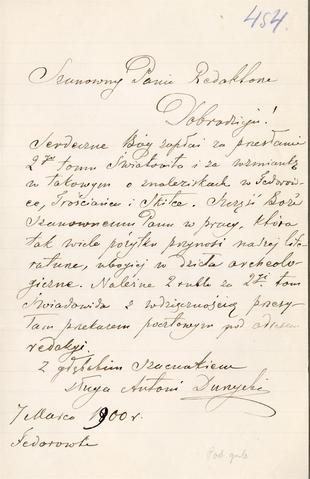 454.
Szanowny Panie Redaktorze
Dobrodzieju!
Serdeczne Bóg zapłać za przesłanie
2go tomu Światowita i za wzmiankę
w takowym o znaleziskach w Fedorów-
ce, Trościańcu i Skitce. Szczęść Boże
Szanownemu Panu w pracy, która
tak wiele pożytku przynosi naszej lite-
raturze, ubogiej w dzieła archeolo-
giczne. Należne 2 ruble za 2gi tom
Światowida z wdzięcznością przesy-
łam przekazem pocztowym pod adresem
redakcji.
Z głębokim szacunkiem
sługa Antoni
7 Marca 1900 r.
Fedorówka